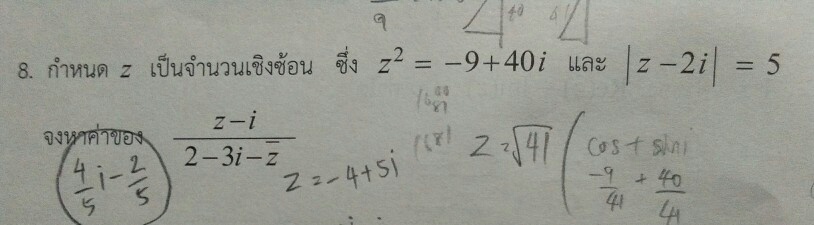 9 40
8. กำหนด z เป็นจำนวนเชิงซ้อน ซึ่ง z² = -9+40i และ |z-2i| = 5
จงหาค่าของ (z-i)/(2-3i-z̄)
4/5 i - 2/5
z = -4+5i
z = √41 ( cos + sin i
-9/41 + 40/41